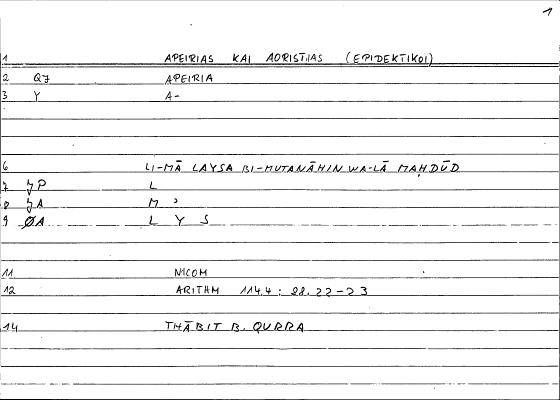 1
1 APEIRIAS KAI AORISTIAS (EPIDEKTIKOI)
2 QZ APEIRIA
3 Y A-
6 LI-MĀ LAYSA BI-MUTANĀHIN WA-LĀ MAḤDŪD
7 ȜP L
8 ȜA M ʾ
9 ØA L Y S
11 NICOM
12 ARITHM 114.4 : 98.22-23
14 THĀBIT B. QURRA